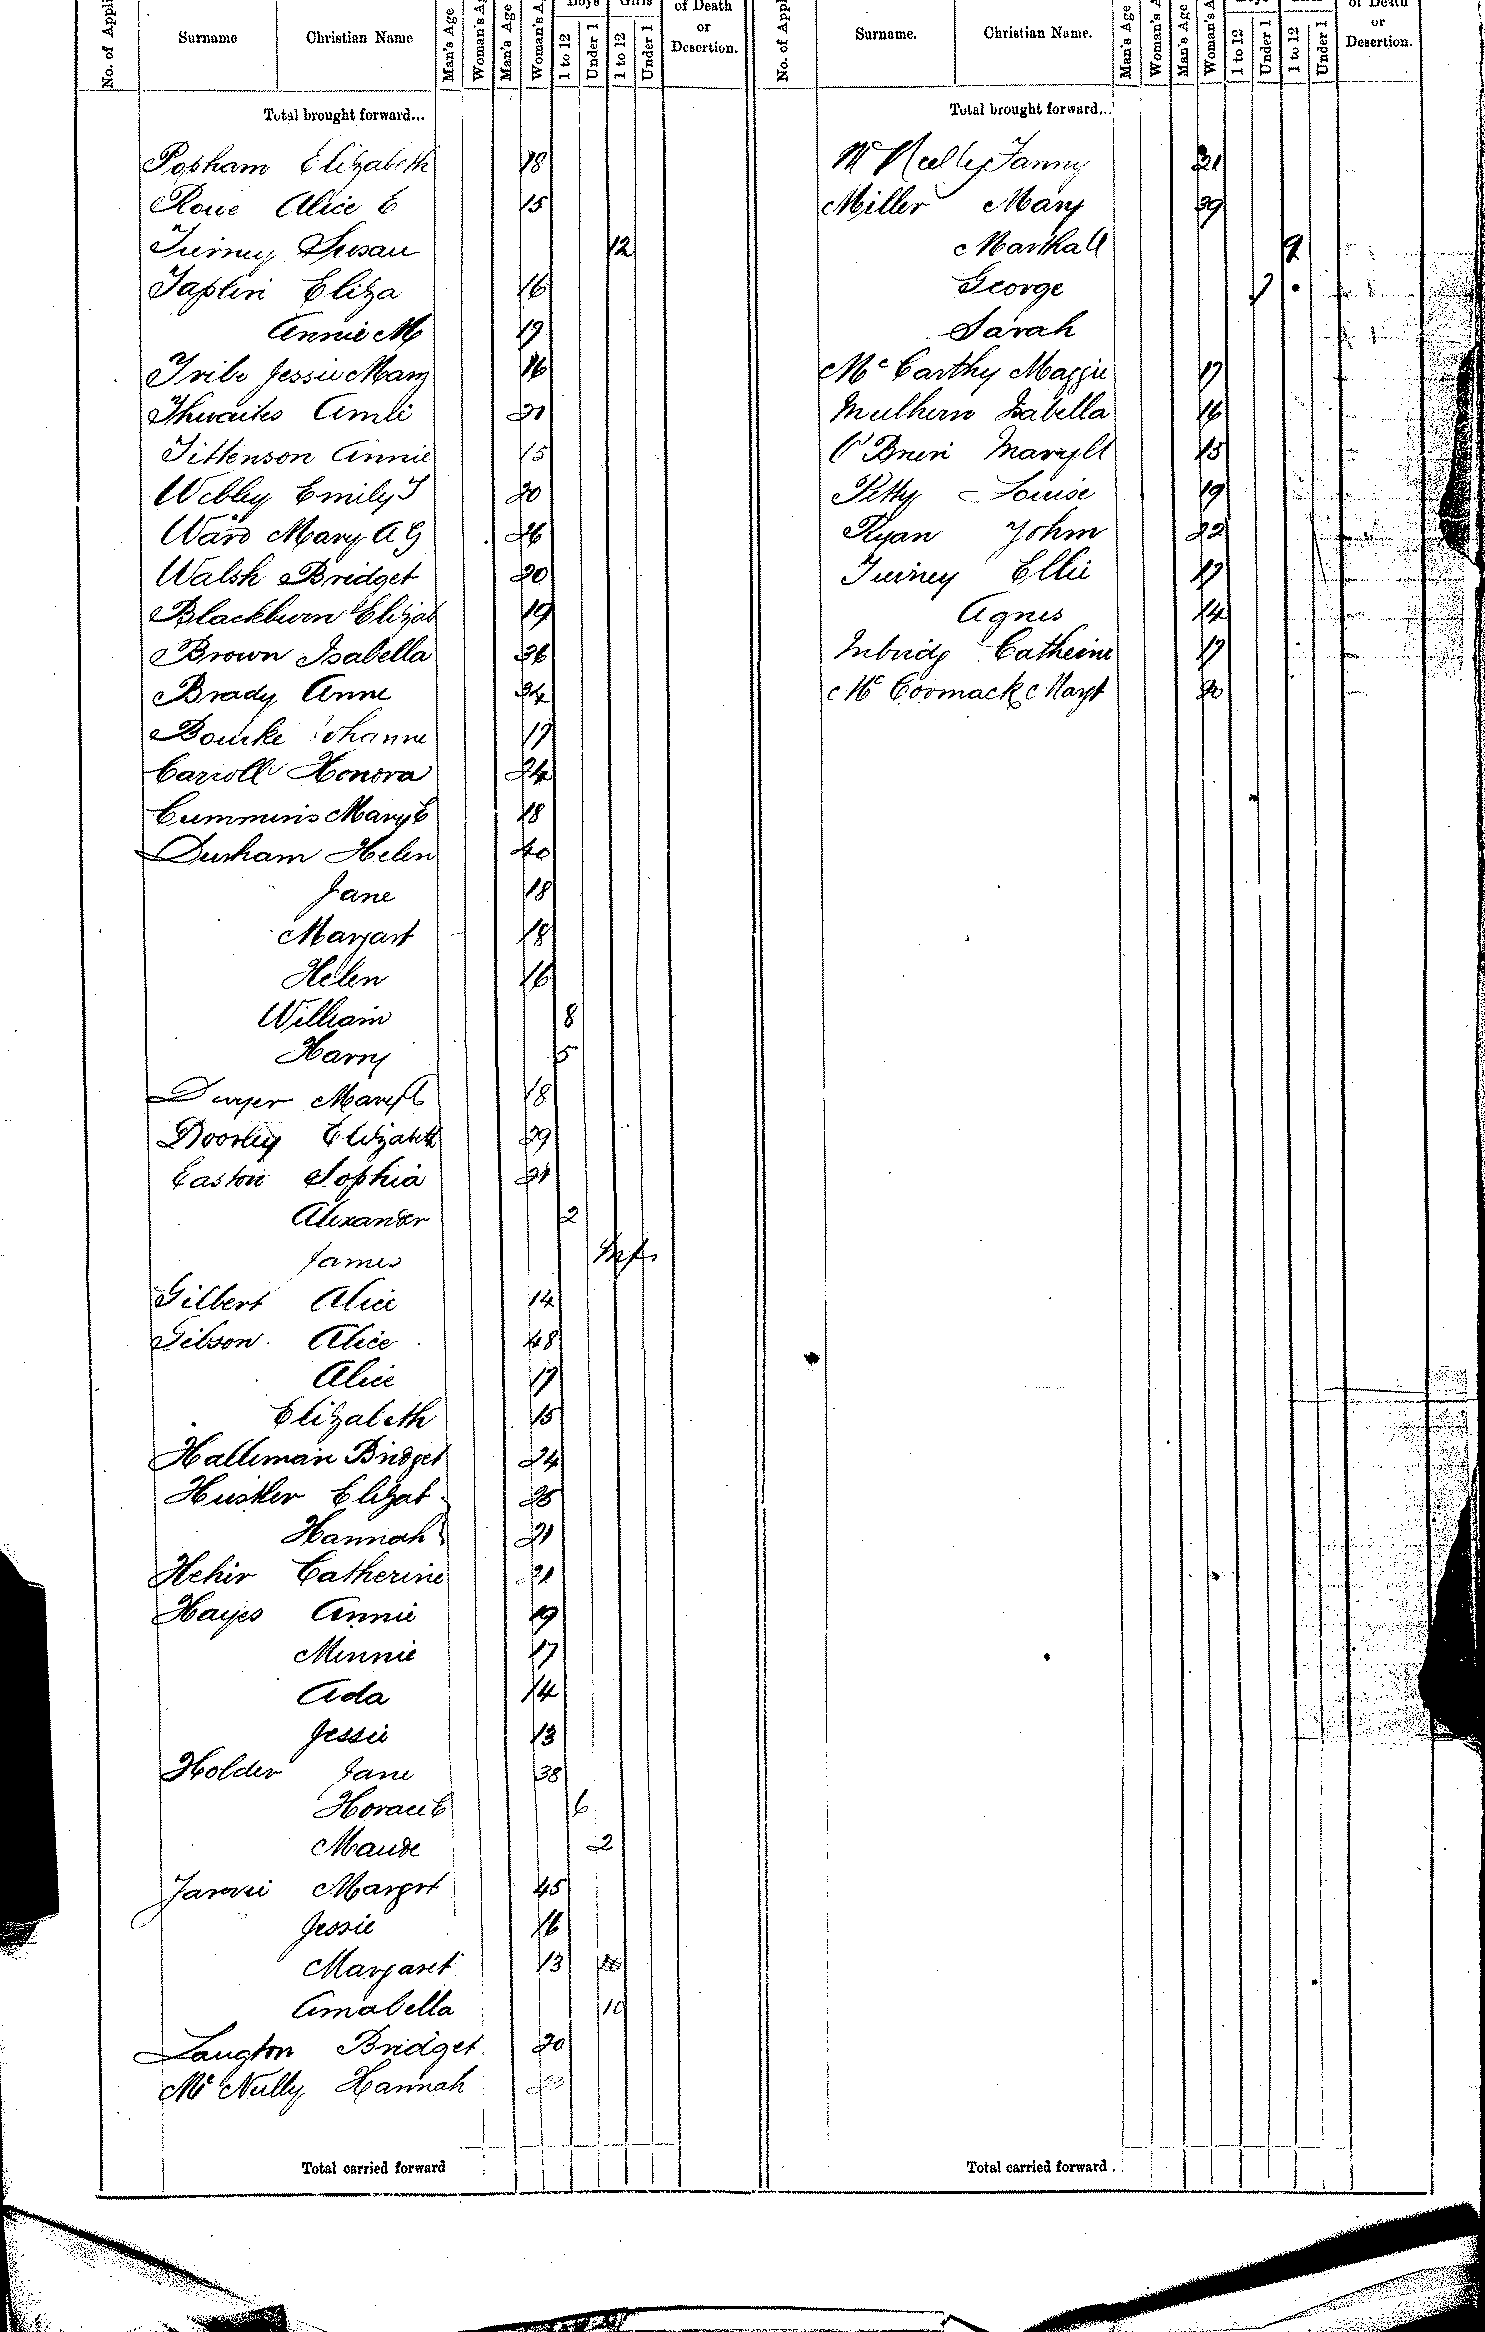 No. of Appli
Surname
Christian Name
Man's Age
Woman's Ag
Man's Age
Woman's A
Boys
Girls
1 to 12
Under 1
1 to 12
Under 1
of Death
or
Desertion.
Total brought forward...
Popham Elizabeth 18
Rowe Alice E 15
Tierney Susan 12
Taplin Eliza 16
Annie M 19
Tribe Jessie Mary 16
Thwaites Amli 21
Tittenson Annie 15
Webley Emily T 20
Ward Mary A G 26
Walsh Bridget 20
Blackburn Elizab 19
Brown Isabella 36
Brady Anne 24
Bourke Johanne 17
Carroll Honora 24
Cummins Mary E 18
Durham Helen 40
Jane 18
Margart 18
Helen 16
William 8
Harry 5
Dwyer Mary 18
Doorley Elizabeth 29
Easton Sophia 21
Alexander 2
James Inf.
Gilbert Alice 14
Gibson Alice 48
Alice 17
Elizabeth 15
Halliman Bridget 24
Huskler Elizab 25
Hannah 21
Hehir Catherine 21
Hayes Annie 19
Minnie 17
Ada 14
Jessie 13
Holder Jane 38
Horace E 6
Maude 2
Jarvie Margrt 45
Jessie 16
Margaret 13
Amabella 10
Langton Bridget 20
McNully Hannah
Total carried forward
No. of Appli
Surname.
Christian Name.
Man's Age
Woman's A
Man's Age
Woman's A
1 to 12
Under 1
1 to 12
Under 1
of Death
or
Desertion.
Total brought forward...
McNully Fanny 21
Miller Mary 39
Martha A 9
George 7
Sarah
McCarthy Maggie 17
Mulhern Isabella 16
O'Brien Mary A 15
Petty Louise 19
Ryan John 22
Tierney Ellie 17
Agnes 14
Catherine 17
McCormack Margt 20
Total carried forward